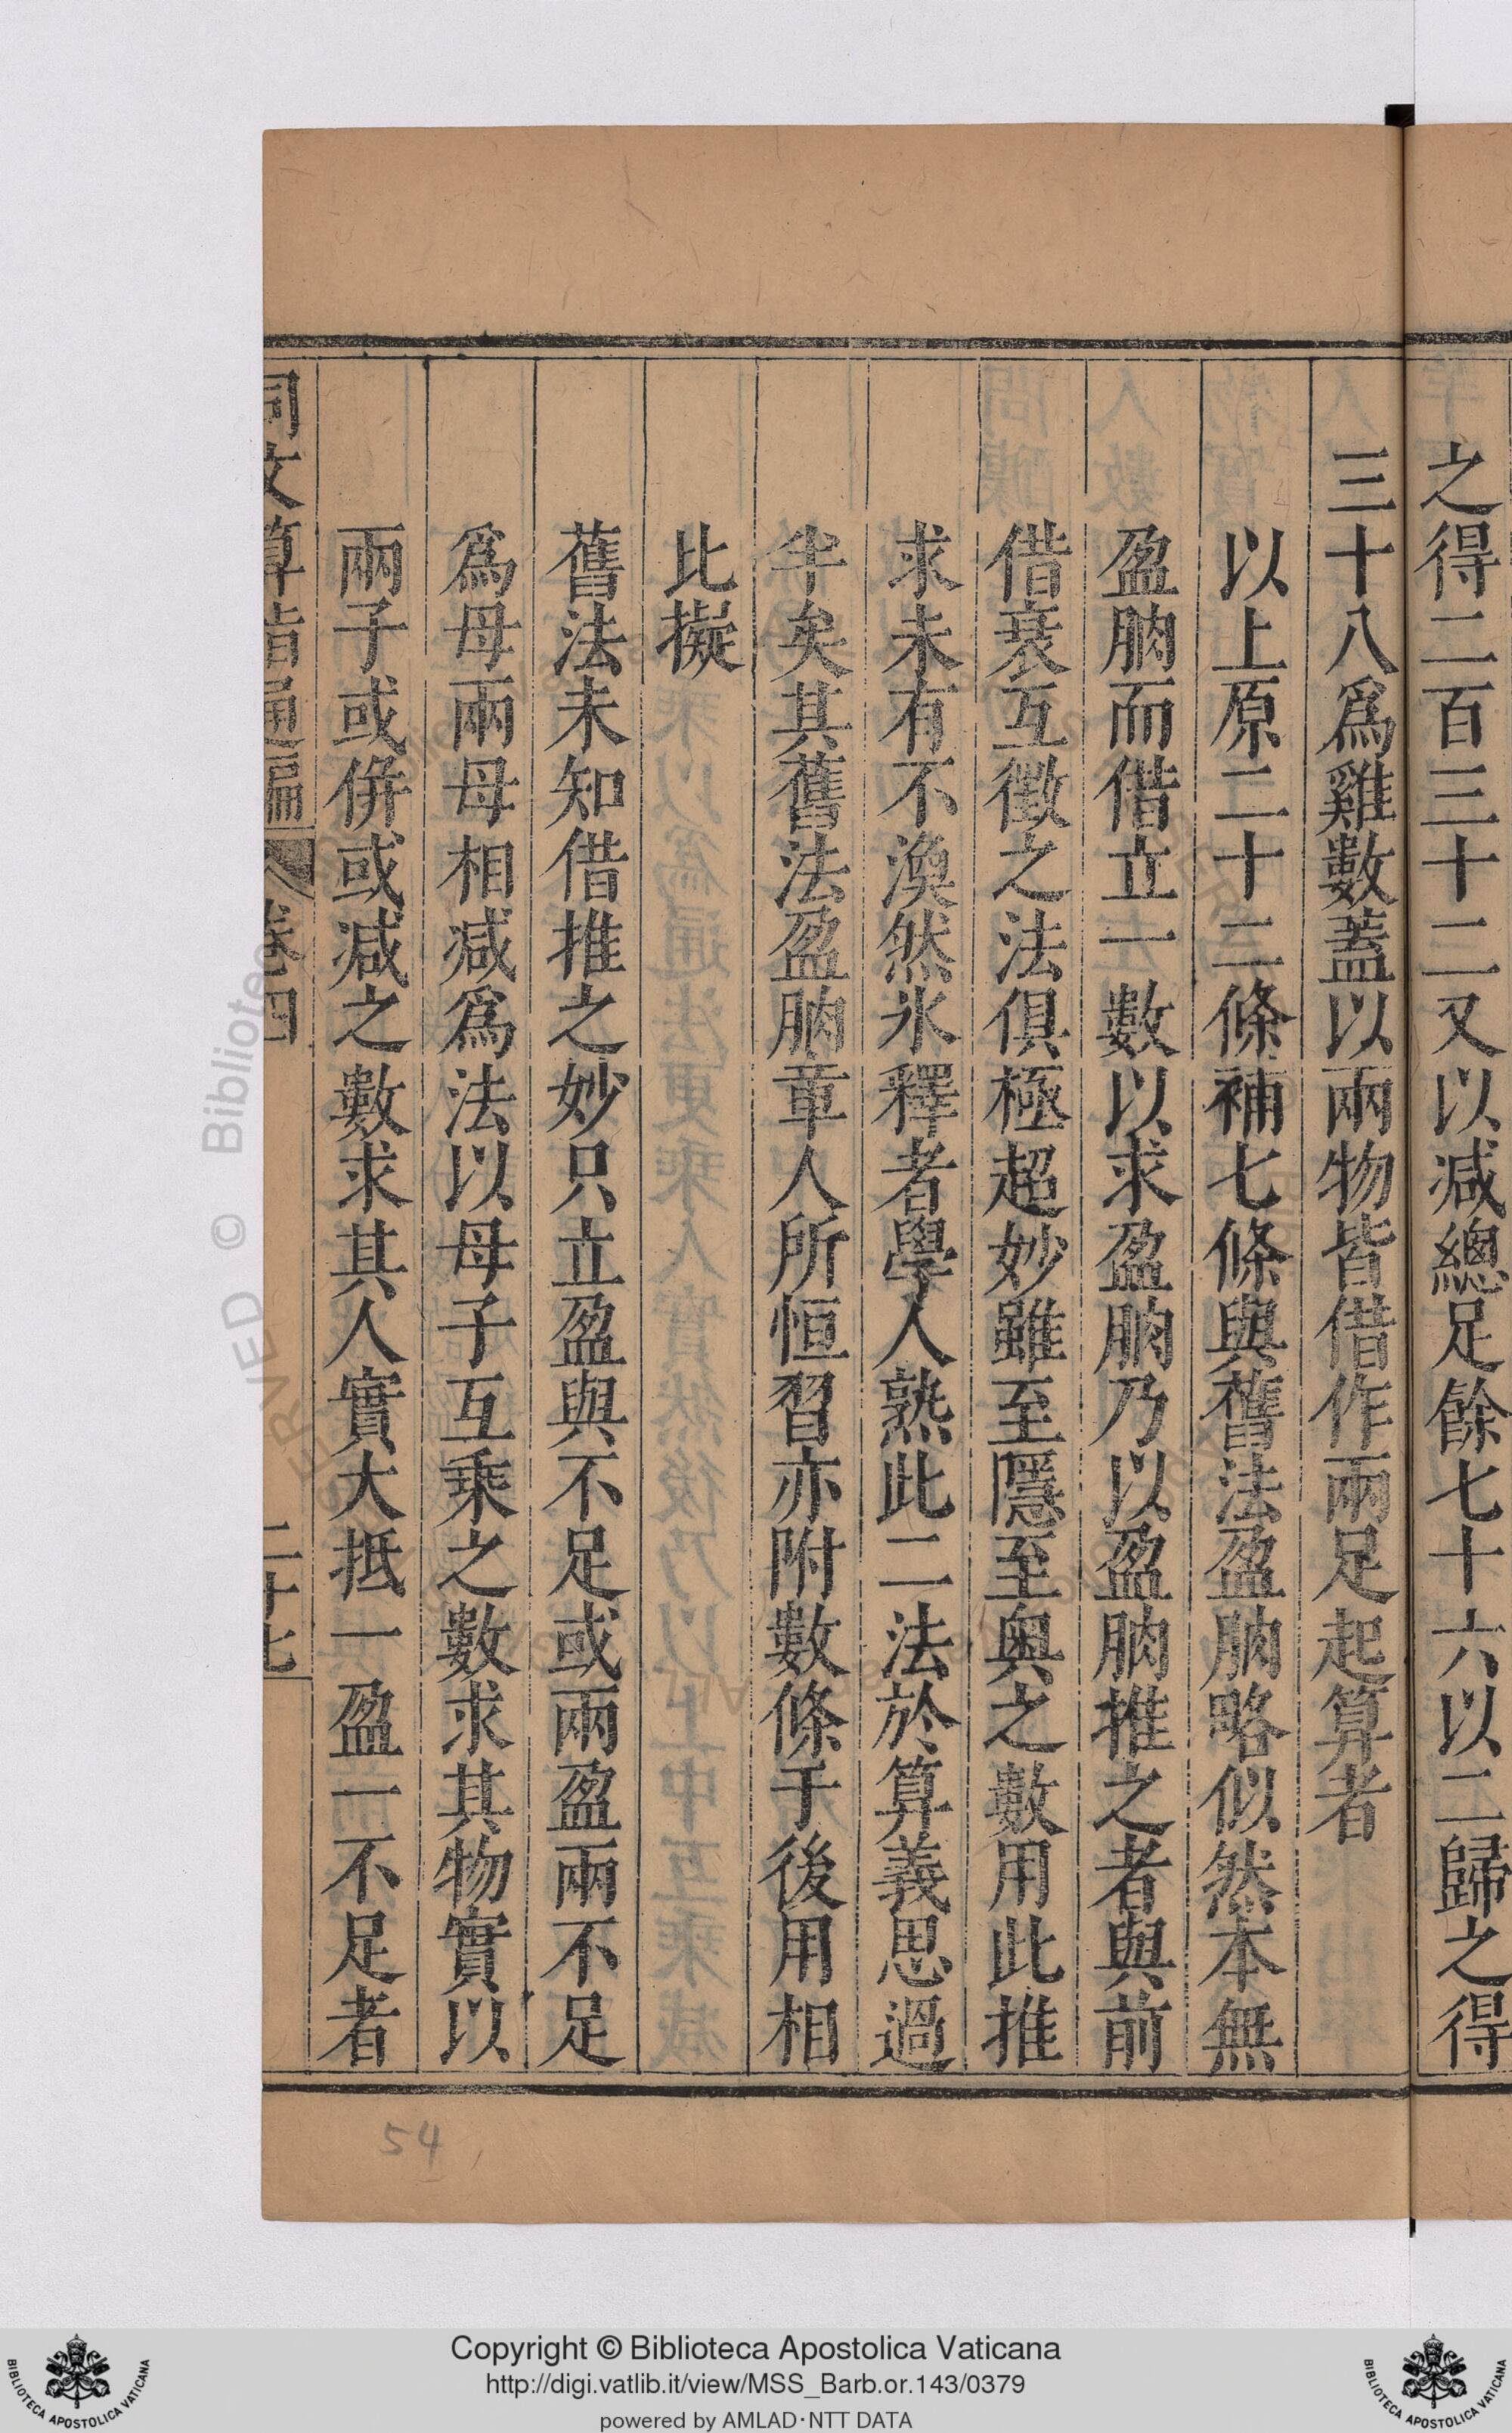 之得二百三十二又以减總足餘七十六以二歸之得
三十八爲雞數蓋以兩物皆借作兩足起算者
以上原二十三條補七條與舊法盈朒略似然本無
盈朒而借立一數以求盈朒乃以盈朒推之者與前
借衰互徵之法俱極超妙雖至隱至奥之數用此推
求未有不渙然氷釋者學人熟此二法於算義思過
半矣其舊法盈朒章人所恒習亦附數條于後用相
比擬
舊法未知借推之妙只立盈與不足或兩盈兩不足
爲母兩母相减爲法以母子互乘之數求其物實以
兩子或併或减之數求其人實大抵一盈一不足者
同文算指通編
卷四
二十七
54
© Bibliotec
RVED
Copyright © Biblioteca Apostolica Vaticana
http://digi.vatlib.it/view/MSS_Barb.or.143/0379
powered by AMLAD·NTT DATA
BIBLIOTECA APOSTOLICA VATICANA
BIBLIOTECA APOSTOLICA VATICANA